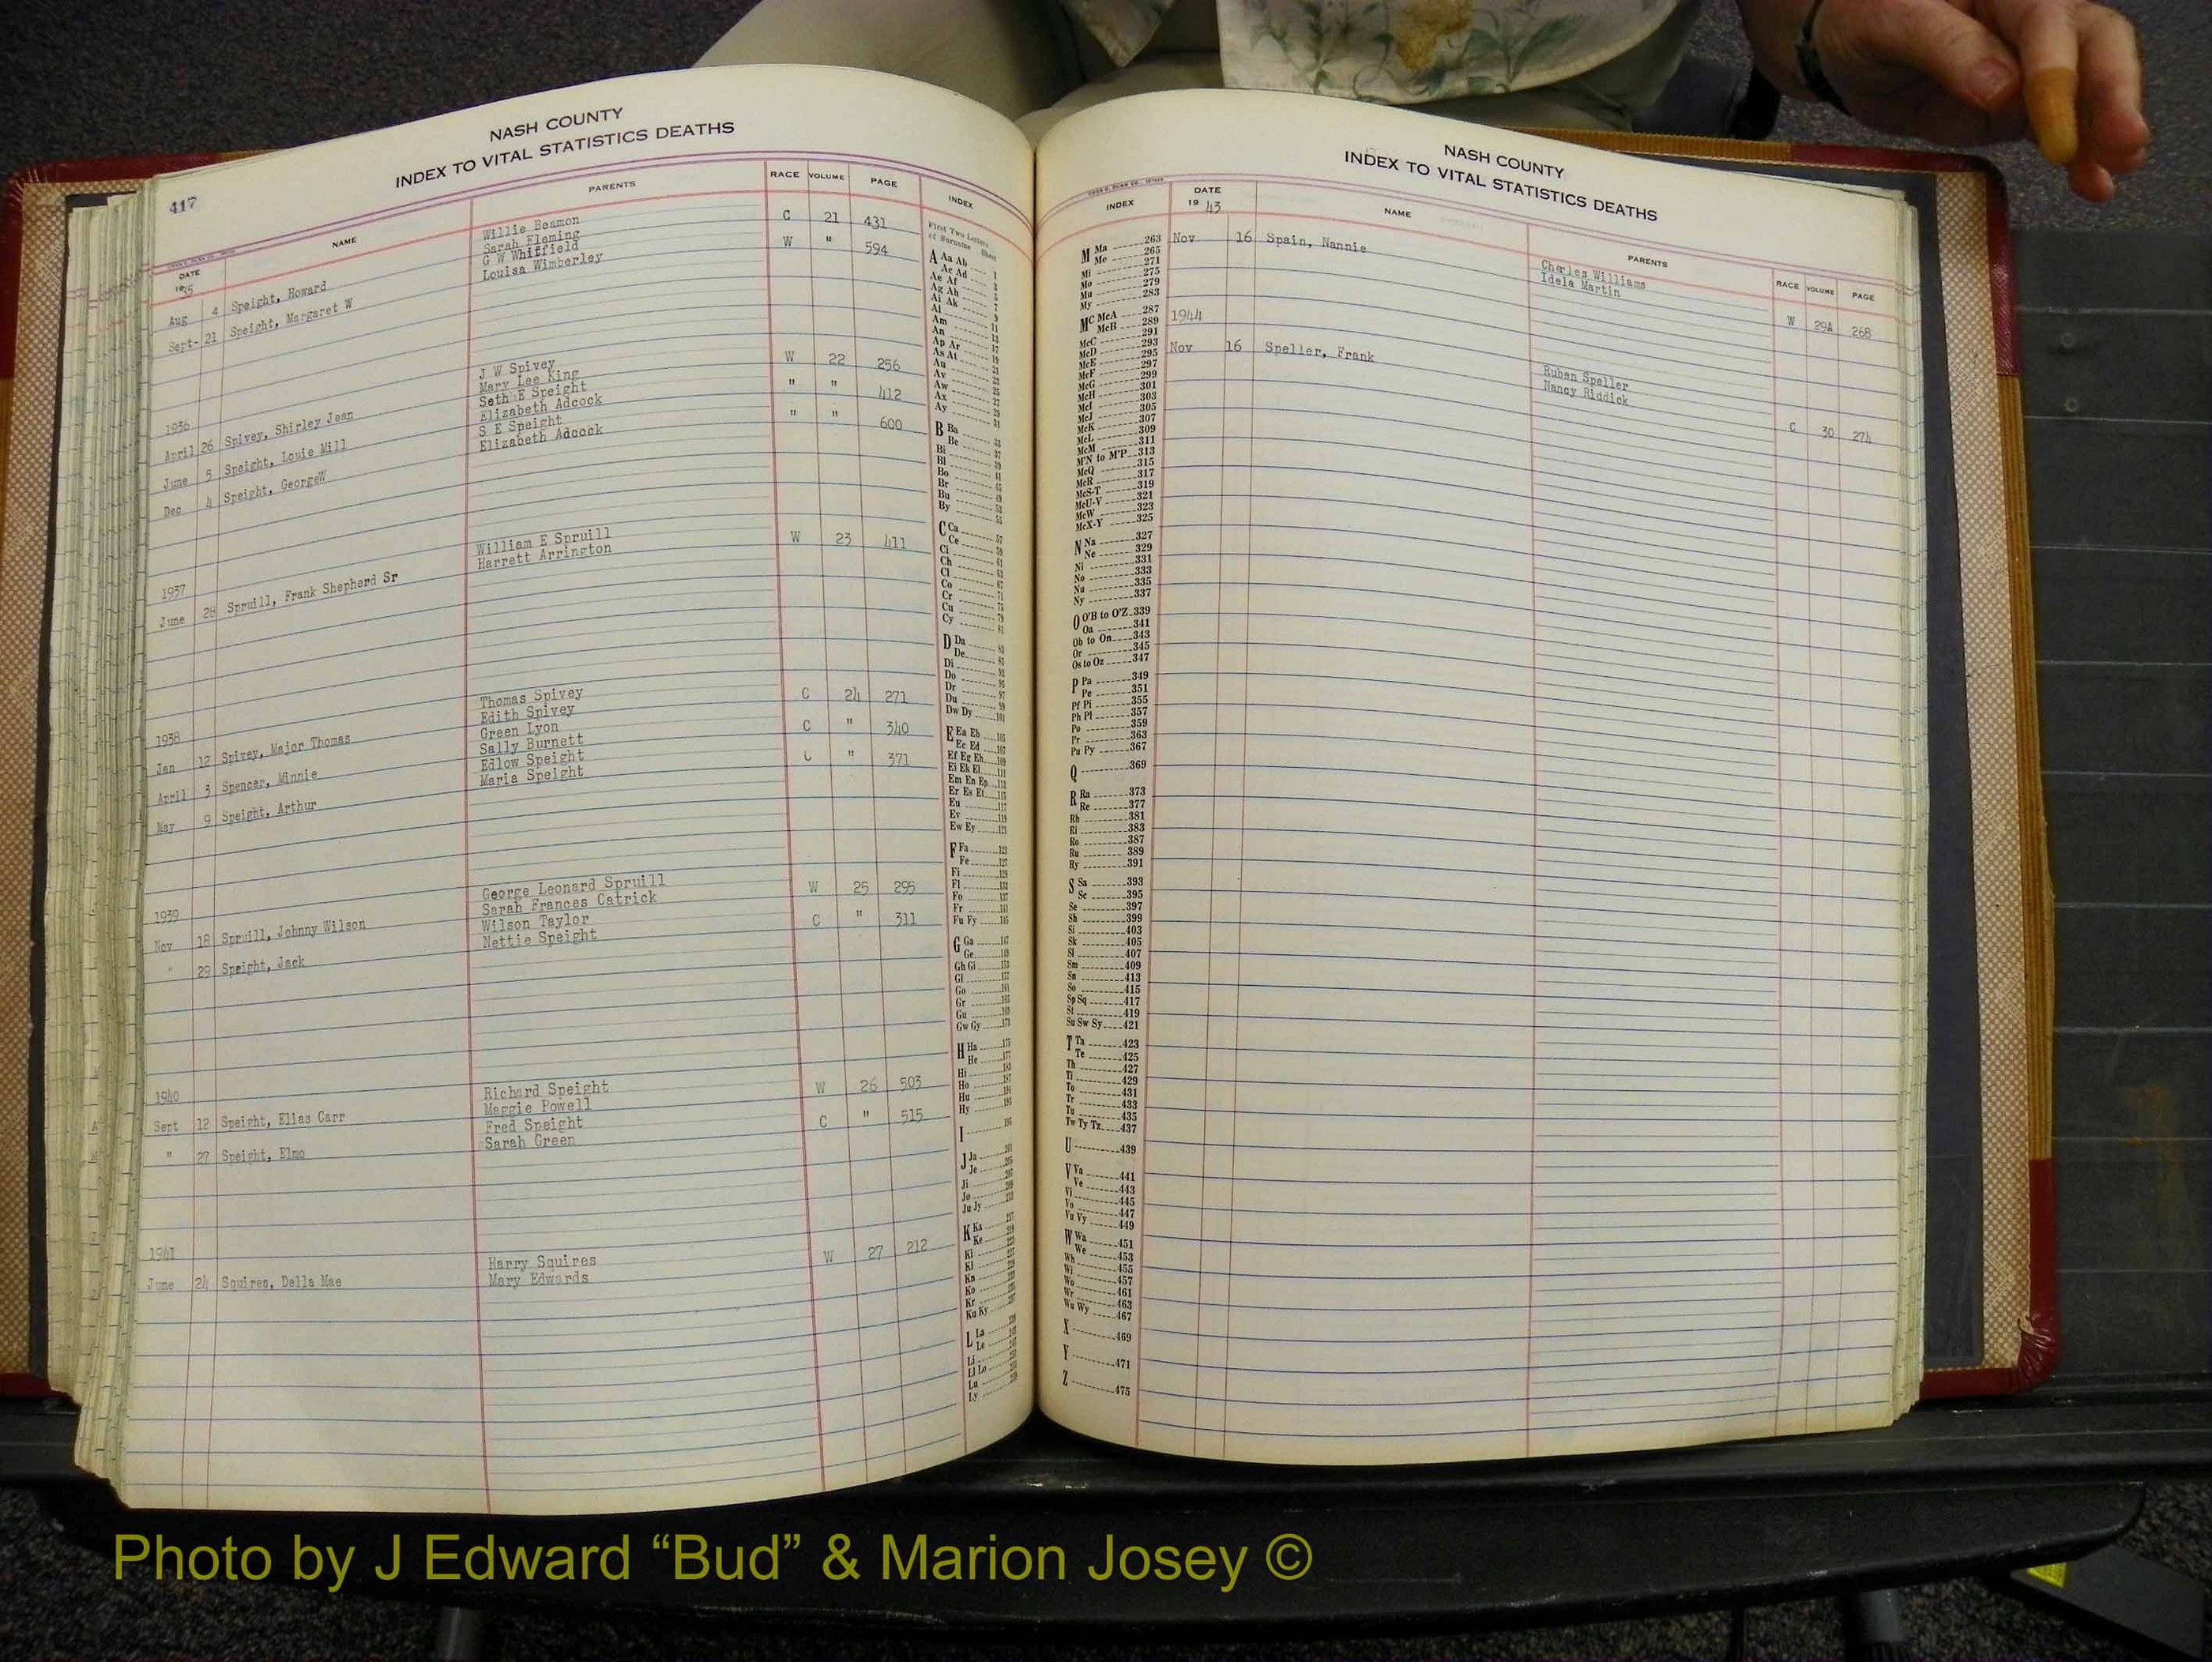 417
NASH COUNTY
INDEX TO VITAL STATISTICS DEATHS
DATE NAME PARENTS RACE VOLUME PAGE INDEX
1935
Aug 4 Speight, Howard Willie Beamon C 21 431
Sarah Fleming
Sept- 21 Speight, Margaret W G W Whitfield W " 594
Louisa Wimberley
1936
April 26 Spivey, Shirley Jean J W Spivey W 22 256
Mary Lee King
June 5 Speight, Louie Mill Seth E Speight " " 412
Elizabeth Adcock
Dec 4 Speight, GeorgeW S E Speight " " 600
Elizabeth Adcock
1937
June 28 Spruill, Frank Shepherd Sr William E Spruill W 23 411
Harrett Arrington
1938
Jan 12 Spivey, Major Thomas Thomas Spivey C 24 271
Edith Spivey
April 3 Spencer, Minnie Green Lyon C " 340
Sally Burnett
May 9 Speight, Arthur Edlow Speight C " 371
Maria Speight
1939
Nov 18 Spruill, Johnny Wilson George Leonard Spruill W 25 295
Sarah Frances Catrick
" 29 Speight, Jack Wilson Taylor C " 311
Nettie Speight
1940
Sept 12 Speight, Elias Carr Richard Speight W 26 503
Maggie Powell
" 27 Speight, Elmo Fred Speight C " 515
Sarah Green
1941
June 24 Squires, Della Mae Harry Squires W 27 212
Mary Edwards
First Two Letters
of Surname Sheet
A Aa Ab
Ac Ad
Ae Af
Ag Ah
Ai Ak
Al
Am
An
Ap Ar
As At
Au
Av
Aw
Ax
Ay
B Ba
Be
Bi
Bl
Bo
Br
Bu
By
C Ca
Ce
Ci
Ch
Cl
Co
Cr
Cu
Cy
D Da
De
Di
Do
Dr
Du
Dw Dy
E Ea Eb
Ec Ed
Ef Eg Eh
Ei Ek El
Em En Ep
Er Es Et
Eu
Ev
Ew Ey
F Fa
Fe
Fi
Fl
Fo
Fr
Fu Fy
G Ga
Ge
Gh Gi
Gl
Go
Gr
Gu
Gw Gy
H Ha
He
Hi
Ho
Hu
Hy
I
J Ja
Je
Ji
Jo
Ju Jy
K Ka
Ke
Ki
Kl
Kn
Ko
Kr
Ku Ky
L La
Le
Li
Ll Lo
Lu
Ly
NASH COUNTY
INDEX TO VITAL STATISTICS DEATHS
INDEX DATE NAME PARENTS RACE VOLUME PAGE
19 43
Nov 16 Spain, Nannie Charles Williams W 29A 268
Idela Martin
1944
Nov 16 Speller, Frank Ruben Speller C 30 274
Nancy Riddick
M Ma 263
Me 265
Mi 271
Mo 275
Mu 279
My 283
Mc McA 287
McB 289
McC 291
McD 293
McE 295
McF 297
McG 299
McH 301
McI 303
McJ 305
McK 307
McL 309
McM 311
M'N to M'P 313
McQ 315
McR 317
McS-T 319
McU-V 321
McW 323
McX-Y 325
N Na 327
Ne 329
Ni 331
No 333
Nu 335
Ny 337
O O'B to O'Z 339
Oa 341
Ob to On 343
Or 345
Os to Oz 347
P Pa 349
Pe 351
Pf Pi 355
Ph Pl 357
Po 359
Pr 363
Pu Py 367
Q 369
R Ra 373
Re 377
Rh 381
Ri 383
Ro 387
Ru 389
Ry 391
S Sa 393
Sc 395
Se 397
Sh 399
Si 403
Sk 405
Sl 407
Sm 409
Sn 413
So 415
Sp Sq 417
St 419
Su Sw Sy 421
T Ta 423
Te 425
Th 427
Ti 429
To 431
Tr 433
Tu 435
Tw Ty Tz 437
U 439
V Va 441
Ve 443
Vi 445
Vo 447
Vu Vy 449
W Wa 451
We 453
Wh 455
Wi 457
Wo 461
Wr 463
Wu Wy 467
X 469
Y 471
Z 475
Photo by J Edward “Bud” & Marion Josey ©